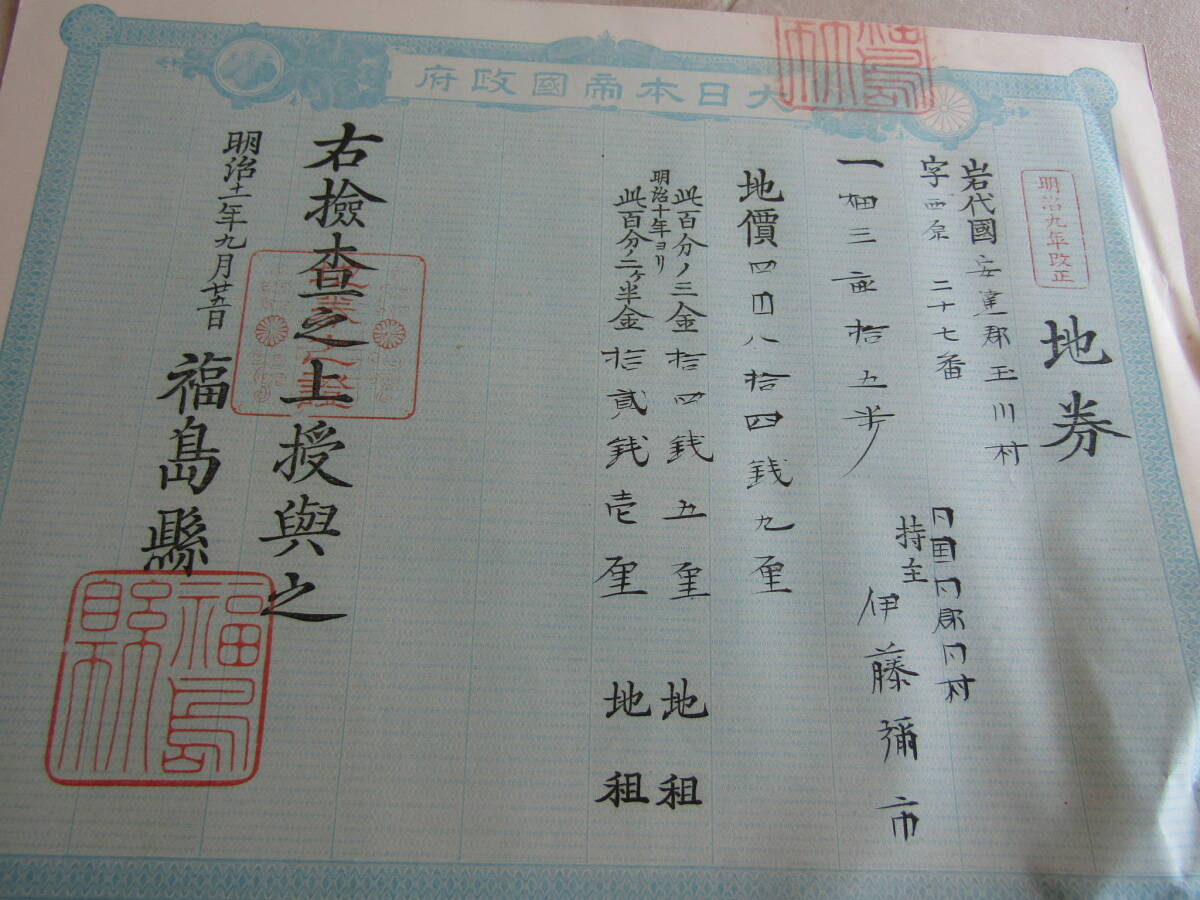 大日本帝國政府
明治九年改正
地券
岩代國安達郡玉川村
字西原 二十七番
同国同郡同村
持主 伊藤彌市
一畑三畝拾五歩
地價四円八拾四銭九厘
此百分ノ三金拾四銭五厘 地租
明治十年ヨリ
此百分ノ二ヶ半金拾貳銭壱厘 地租
右撿査之上授與之
明治十一年九月廿五日
福島縣
福島縣